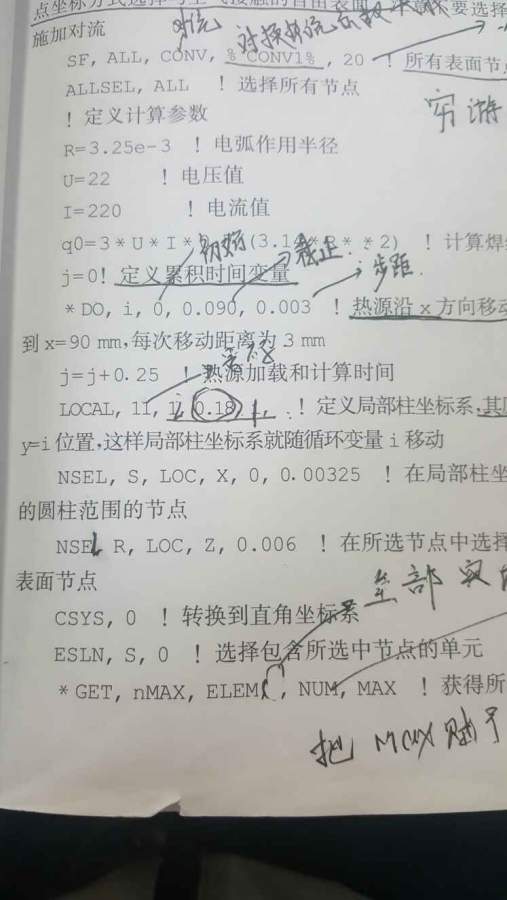 点坐标方式选择与空气接触的自由表面
要选择
施加对流
对流
SF, ALL, CONV, %CONV1%, 20 ! 所有表面节点
ALLSEL, ALL ! 选择所有节点
! 定义计算参数
R=3.25e-3 ! 电弧作用半径
U=22 ! 电压值
I=220 ! 电流值
q0=3*U*I* (3.14 2) ! 计算焊
初始
截止
步距
j=0! 定义累积时间变量
*DO, i, 0, 0.090, 0.003 ! 热源沿 x 方向移动
到 x=90 mm,每次移动距离为 3 mm
j=j+0.25 ! 热源加载和计算时间
LOCAL, 11, 1, 0.18, ! 定义局部柱坐标系,其
y=i 位置,这样局部柱坐标系就随循环变量 i 移动
NSEL, S, LOC, X, 0, 0.00325 ! 在局部柱坐
的圆柱范围的节点
NSEL R, LOC, Z, 0.006 ! 在所选节点中选择
表面节点
全部
CSYS, 0 ! 转换到直角坐标系
ESLN, S, 0 ! 选择包含所选中节点的单元
*GET, nMAX, ELEM, , NUM, MAX ! 获得所
把 max 赋予